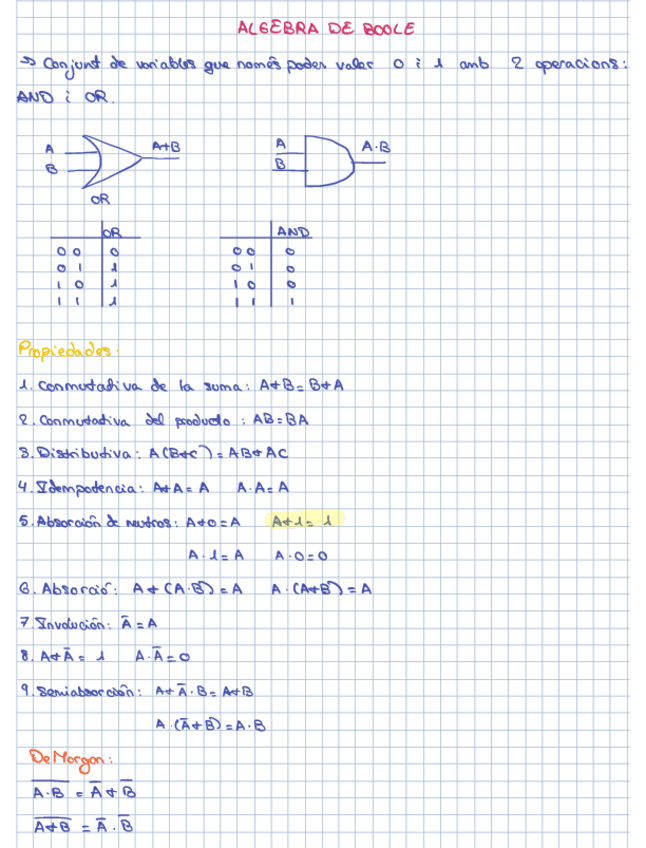 ALGEBRA DE BOOLE
→ Conjunt de variables que només poden valer 0 i 1 amb 2 operacions:
AND i OR.
A A+B A A·B
B B
OR
OR AND
0 0 0 0 0 0
0 1 1 0 1 0
1 0 1 1 0 0
1 1 1 1 1 1
Propiedades:
1. Conmutativa de la suma: A+B=B+A
2. Conmutativa del producto: AB=BA
3. Distributiva: A(B+C)=AB+AC
4. Idempotencia: A+A=A A·A=A
5. Absorción de neutros: A+0=A A+1=1
A·1=A A·0=0
6. Absorció: A+(A·B)=A A·(A+B)=A
7. Involución: Ā=A
8. A+Ā=1 A·Ā=0
9. Semiabsorción: A+Ā·B=A+B
A·(Ā+B)=A·B
De Morgan:
A̅·̅B̅ = A̅+B̅
A̅+̅B̅ = A̅·B̅